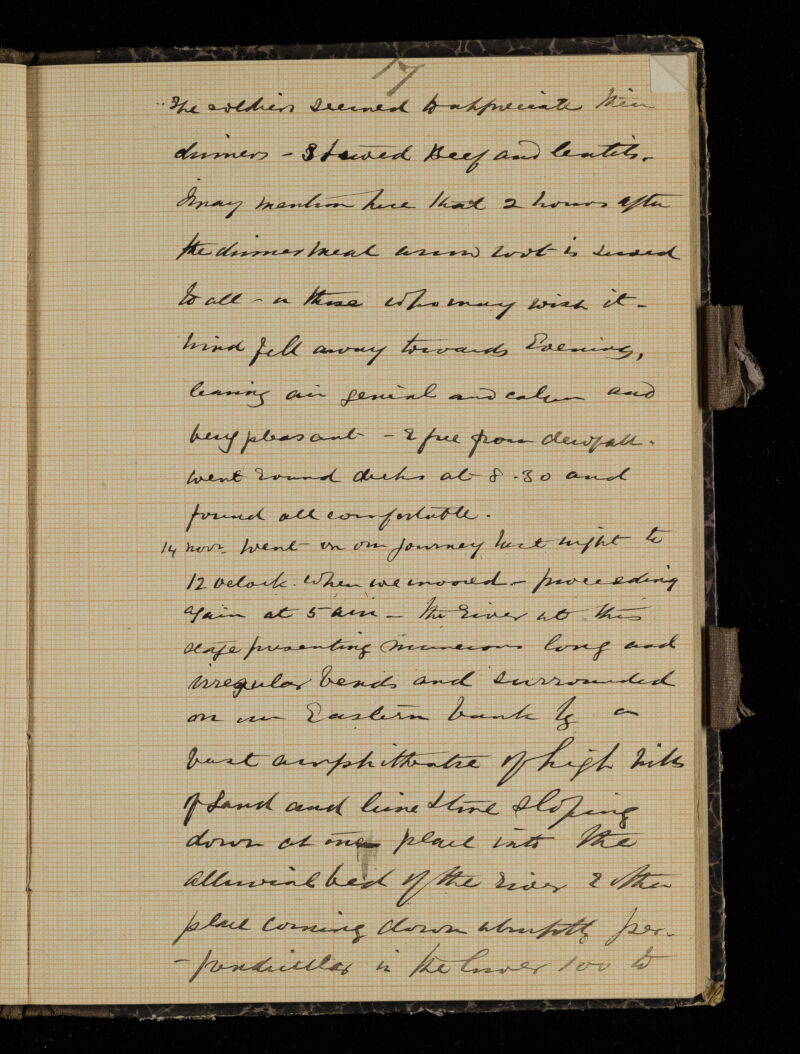 17
The soldiers seemed to appreciate their
dinners - Stewed Beef and lentils.
I may mention here that 2 hours after
the dinner meal a rum toot is served
to all - or those who may wish it -
Wind fell away towards Evening,
leaving air genial and calm and
very pleasant - & free from dewfall.
went round decks at 8.30 and
found all comfortable.
14 Novr. Went on our journey last night to
12 oclock. when we moored - proceeding
again at 5 am - the river at this
stage presenting numerous long and
irregular bends and surrounded
on our Eastern bank by a
vast amphitheatre of high hills
of sand and limestone sloping
down at one place into the
alluvial bed of the river & other
place coming down abruptly per-
-pendicular in the lower 100 to